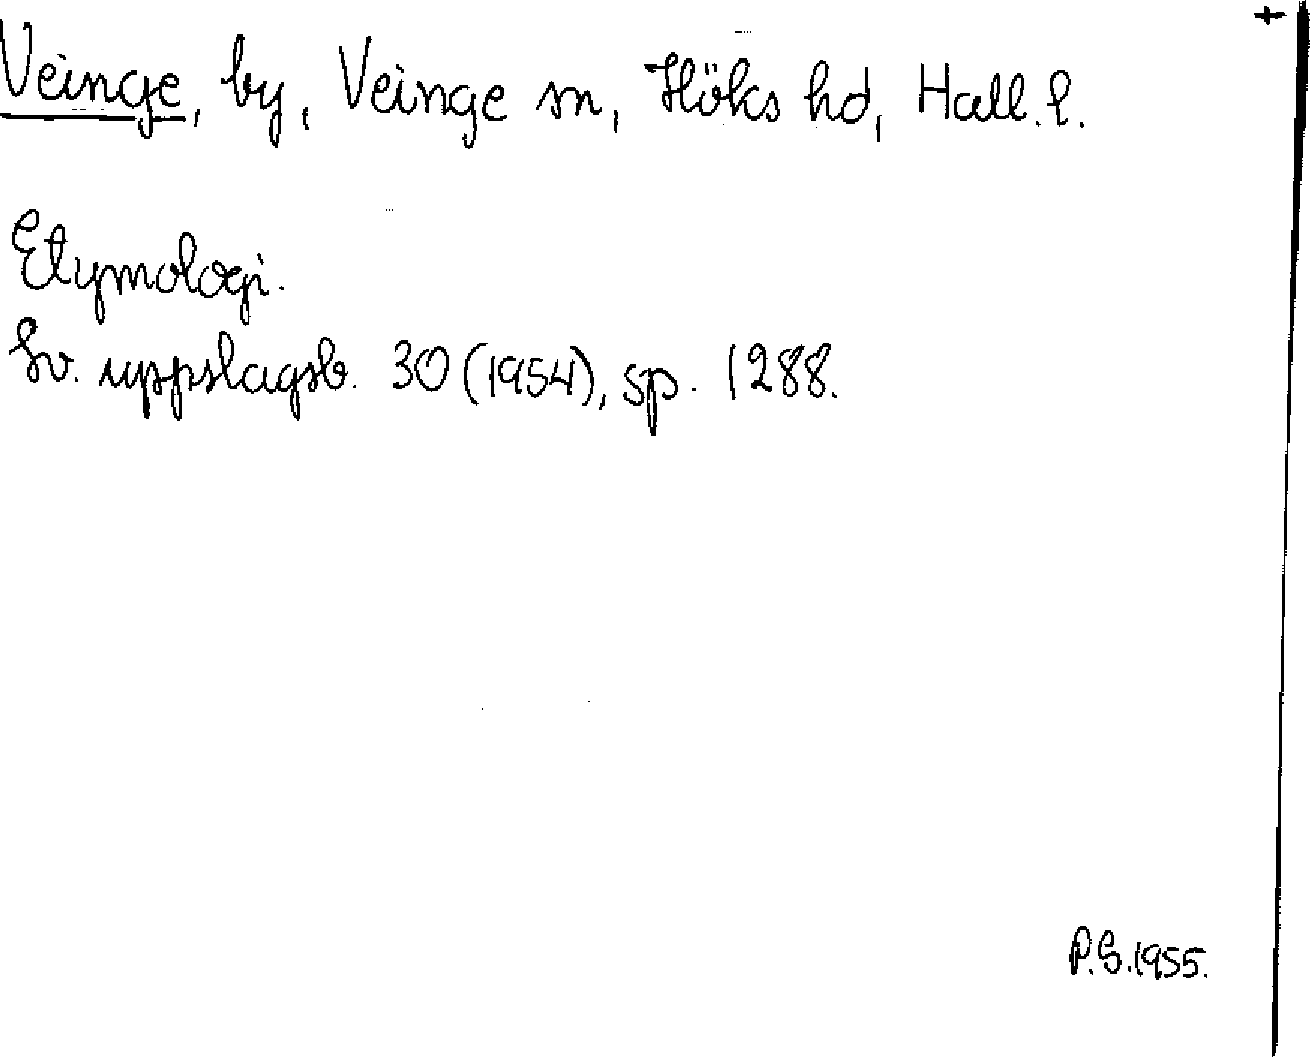 Veinge, by, Veinge sn, Höks hd, Hall. l.
Etymologi.
Sv. uppslagsb. 30 (1954), sp. 1288.
P.S. 1955.